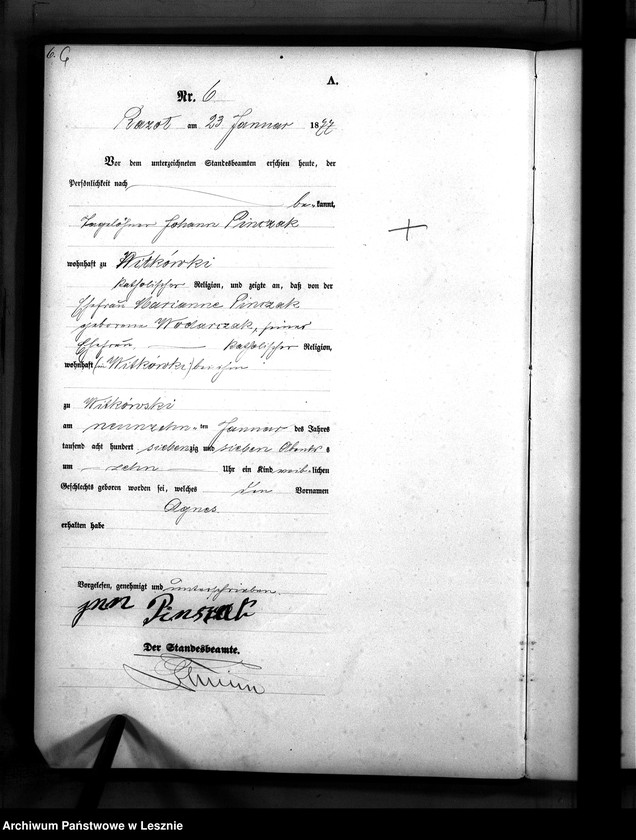 6. 6
A.
Nr. 6
Razot am 23 Januar 1877
Vor dem unterzeichneten Standesbeamten erschien heute, der
Persönlichkeit nach
be-kannt,
Tagelöhner Johann Pinczak
wohnhaft zu Witkówki
katholischer Religion, und zeigte an, daß von der
Ehefrau Marianne Pinczak
geborene Wodarczak, seiner
Ehefrau, katholischer Religion,
wohnhaft (in Witkówki) bei ihm
zu Witkówski
am neunzehn-ten Januar des Jahres
tausend acht hundert siebenzig und sieben Abends
um zehn Uhr ein Kind weib-lichen
Geschlechts geboren worden sei, welches den Vornamen
Agnes
erhalten habe
Vorgelesen, genehmigt und unterschrieben.
Der Standesbeamte.
Archiwum Państwowe w Lesznie